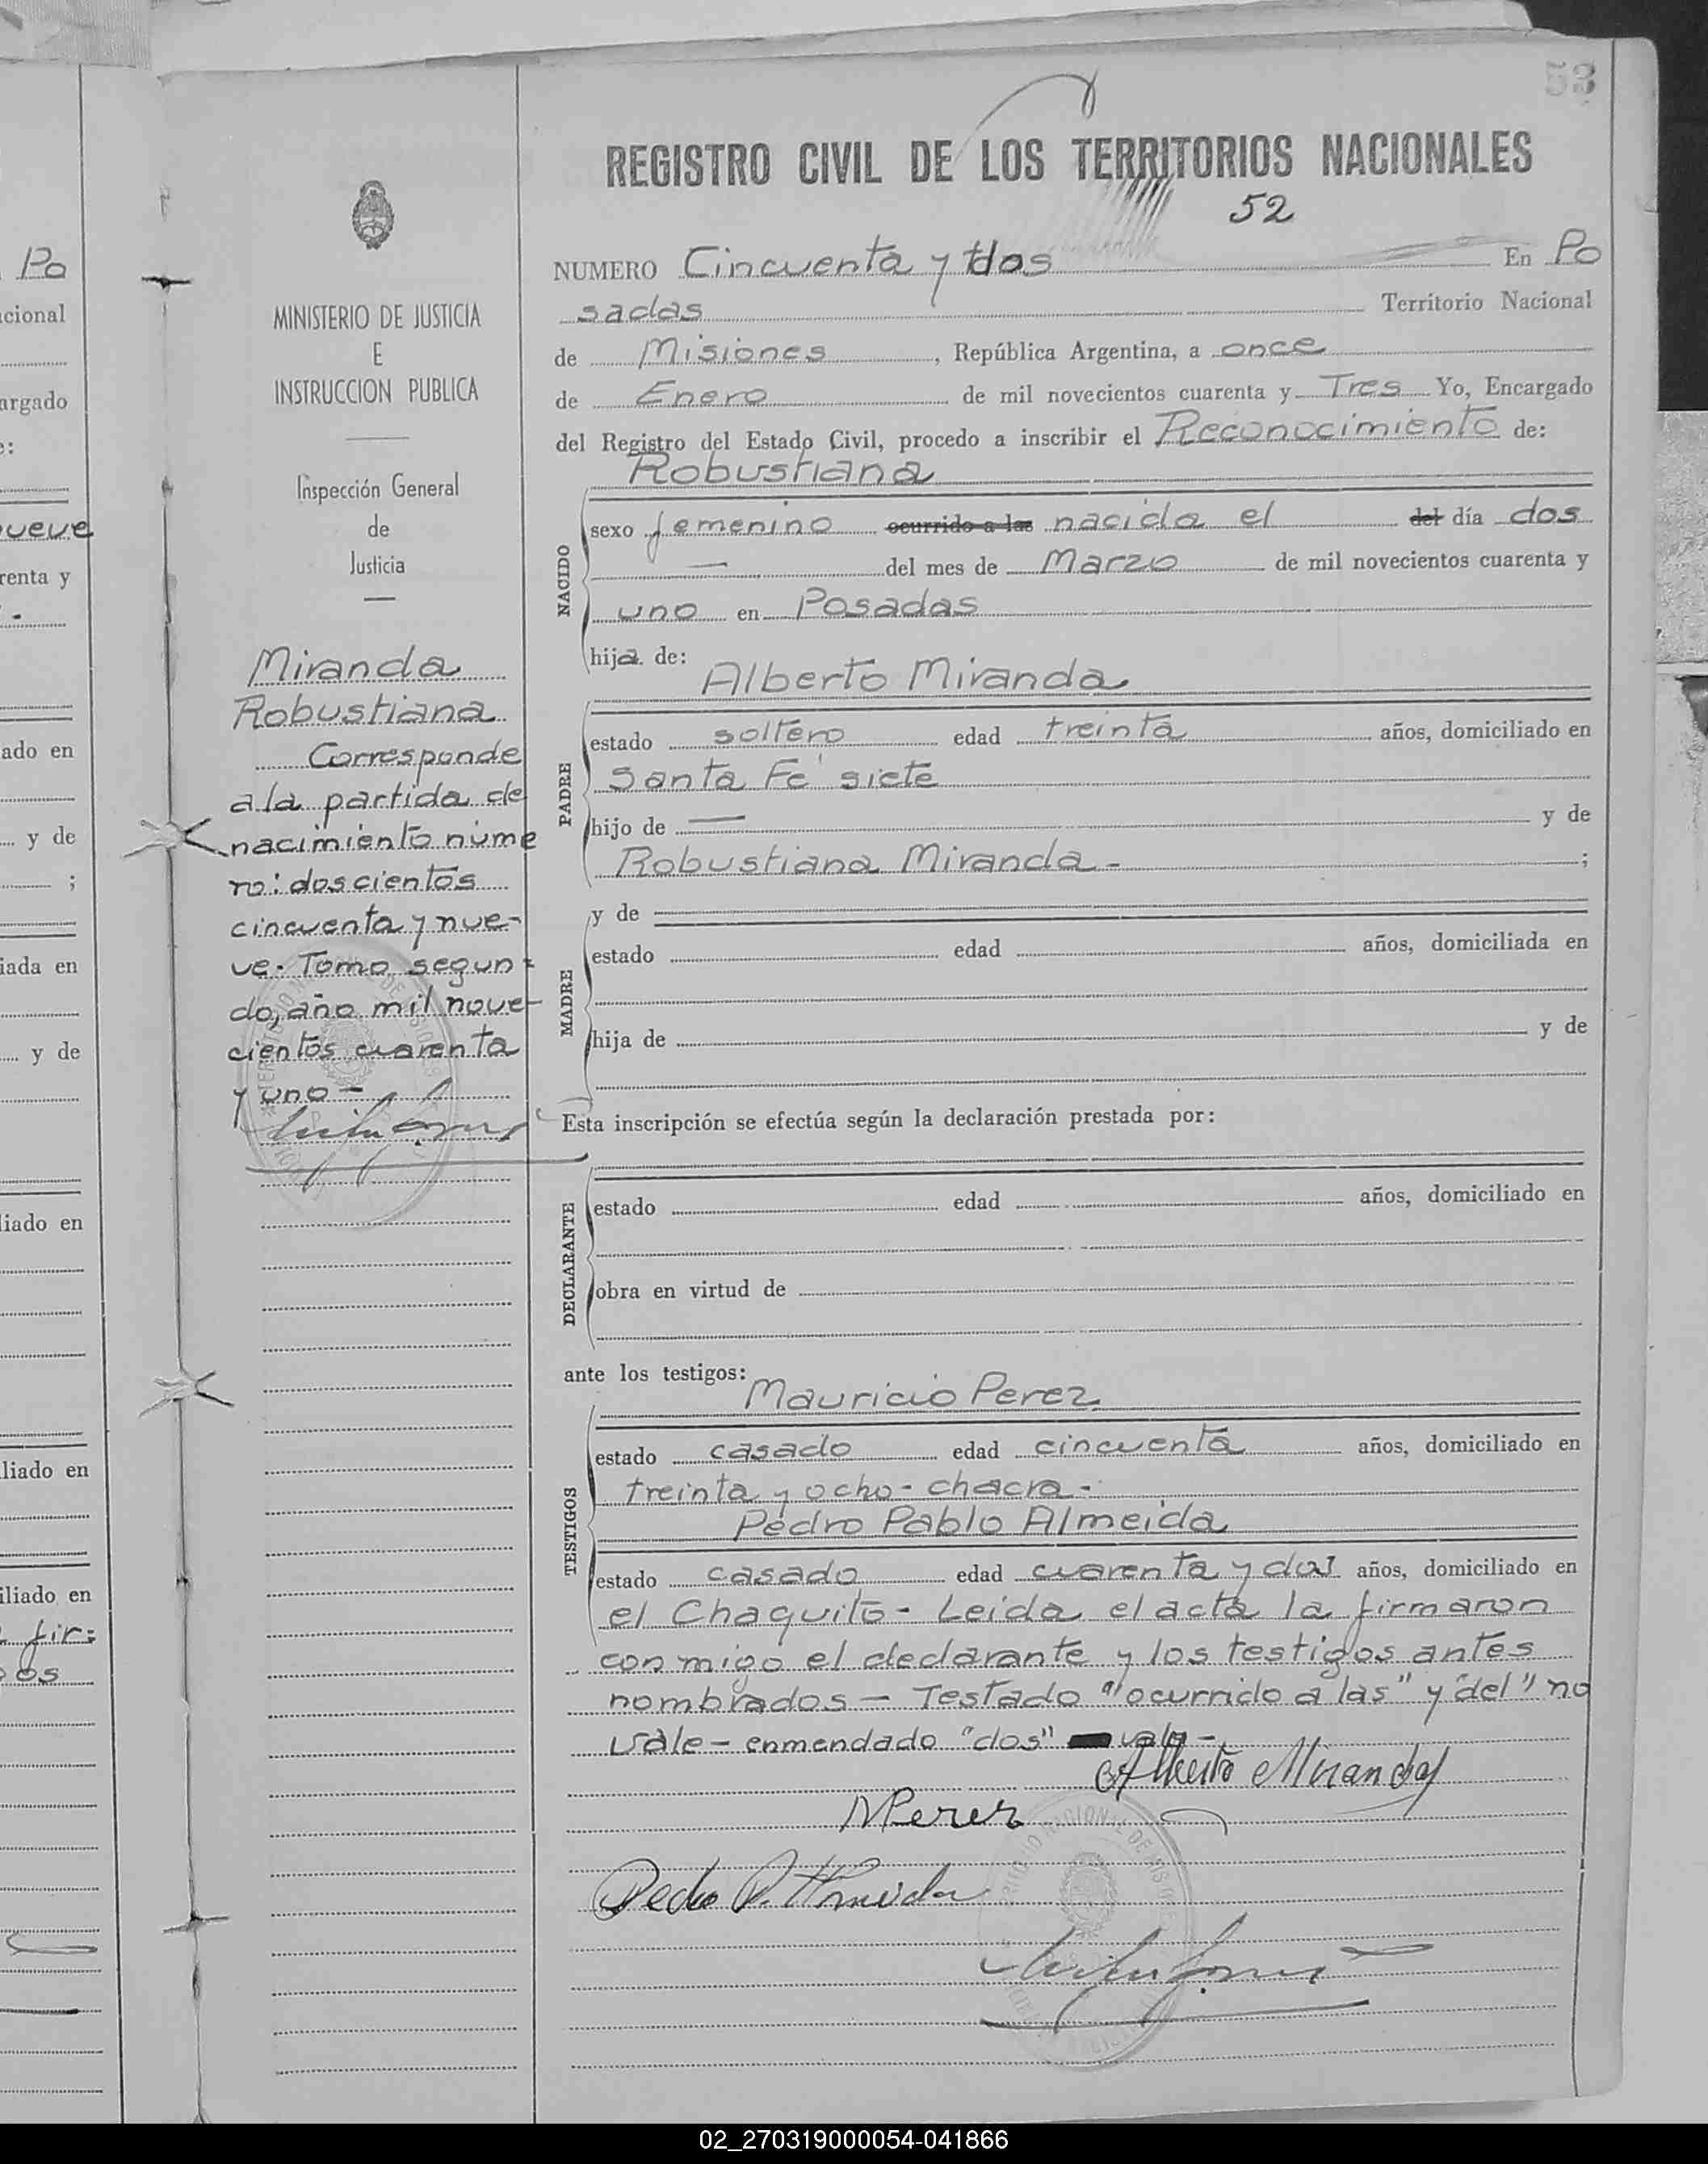 53
REGISTRO CIVIL DE LOS TERRITORIOS NACIONALES
52
NUMERO Cincuenta y dos En Po
sadas Territorio Nacional
de Misiones, República Argentina, a once
de Enero de mil novecientos cuarenta y Tres Yo, Encargado
del Registro del Estado Civil, procedo a inscribir el Reconocimiento de:
Robustiana
NACIDO
sexo femenino ocurrido a las nacida el del día dos
— del mes de Marzo de mil novecientos cuarenta y
uno en Posadas
hija de:
Alberto Miranda
PADRE
estado soltero edad treinta años, domiciliado en
Santa Fe siete
hijo de — y de
Robustiana Miranda - ;
y de
MADRE
estado edad años, domiciliada en
hija de y de
Esta inscripción se efectúa según la declaración prestada por:
DECLARANTE
estado edad años, domiciliado en
obra en virtud de
ante los testigos:
Mauricio Perez
TESTIGOS
estado casado edad cincuenta años, domiciliado en
treinta y ocho - chacra -
Pedro Pablo Almeida
estado casado edad cuarenta y dos años, domiciliado en
el Chaquito - Leida el acta la firmaron
con migo el declarante y los testigos antes
nombrados - Testado "ocurrido a las" y "del" no
vale - enmendado "dos" vale -
Alberto Miranda
MPerez
Pedro P. Almeida
MINISTERIO DE JUSTICIA
E
INSTRUCCION PUBLICA
Inspección General
de
Justicia
Miranda
Robustiana
Corresponde
a la partida de
nacimiento núme
ro: doscientos
cincuenta y nue-
ve. Tomo segun-
do, año mil nove-
cientos cuarenta
y uno -
Po
cional
argado
e:
ueve
renta y
ado en
y de
;
iada en
y de
liado en
liado en
iliado en
fir=
os
02_270319000054-041866